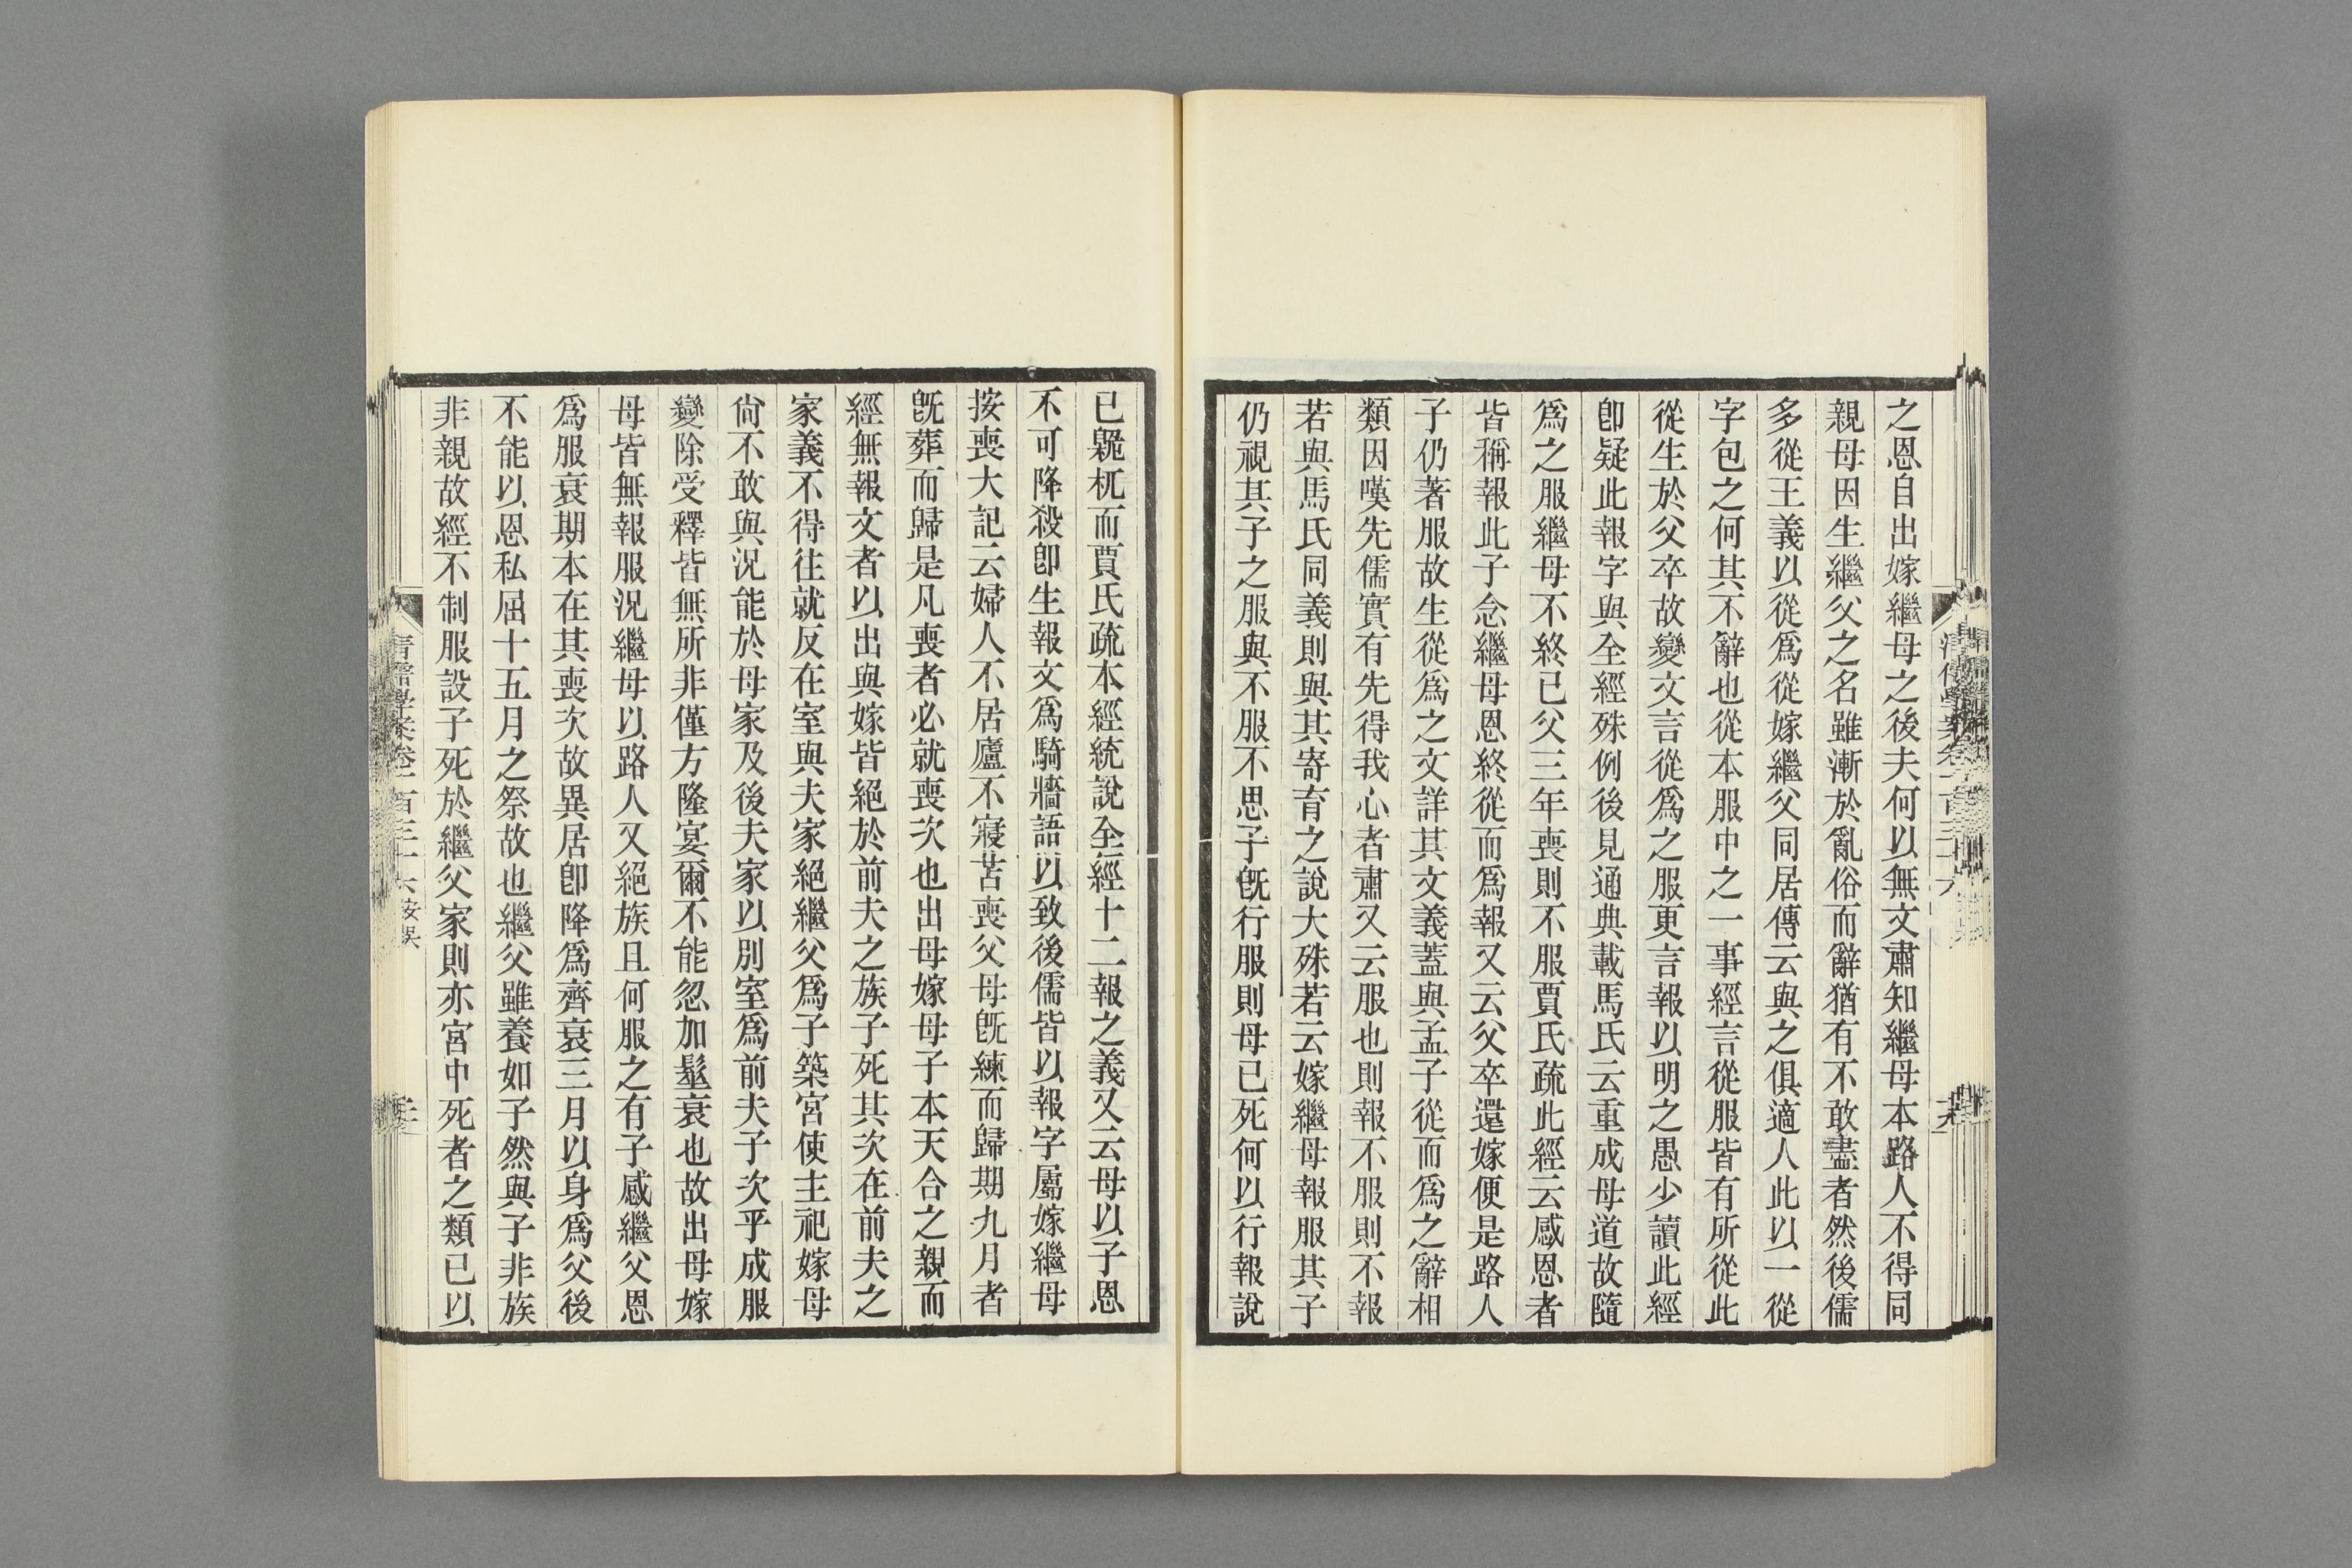 之恩自出嫁繼母之後夫何以無文肅知繼母本路人不得同
親母因生繼父之名雖漸於亂俗而辭猶有不敢盡者然後儒
多從王義以從爲從嫁繼父同居傳云與之俱適人此以一從
字包之何其不辭也從本服中之一事經言從服皆有所從此
從生於父卒故變文言從爲之服更言報以明之愚少讀此經
卽疑此報字與全經殊例後見通典載馬氏云重成母道故隨
爲之服繼母不終己父三年喪則不服賈氏疏此經云感恩者
皆稱報此子念繼母恩終從而爲報又云父卒還嫁便是路人
子仍著服故生從爲之文詳其文義蓋與孟子從而爲之辭相
類因嘆先儒實有先得我心者肅又云服也則報不服則不報
若與馬氏同義則與其寄育之說大殊若云嫁繼母報服其子
仍視其子之服與不服不思子旣行服則母已死何以行報說
已臲杌而賈氏疏本經統說全經十二報之義又云母以子恩
不可降殺卽生報文爲騎牆語以致後儒皆以報字屬嫁繼母
按喪大記云婦人不居廬不寢苫喪父母旣練而歸期九月者
旣葬而歸是凡喪者必就喪次也出母嫁母子本天合之親而
經無報文者以出與嫁皆絕於前夫之族子死其次在前夫之
家義不得往就反在室與夫家絕繼父爲子築宮使主祀嫁母
尙不敢與況能於母家及後夫家以別室爲前夫子次乎成服
變除受釋皆無所非僅方隆宴爾不能忽加髽衰也故出母嫁
母皆無報服況繼母以路人又絕族且何服之有子感繼父恩
爲服衰期本在其喪次故異居卽降爲齊衰三月以身爲父後
不能以恩私屈十五月之祭故也繼父雖養如子然與子非族
非親故經不制服設子死於繼父家則亦宮中死者之類已以